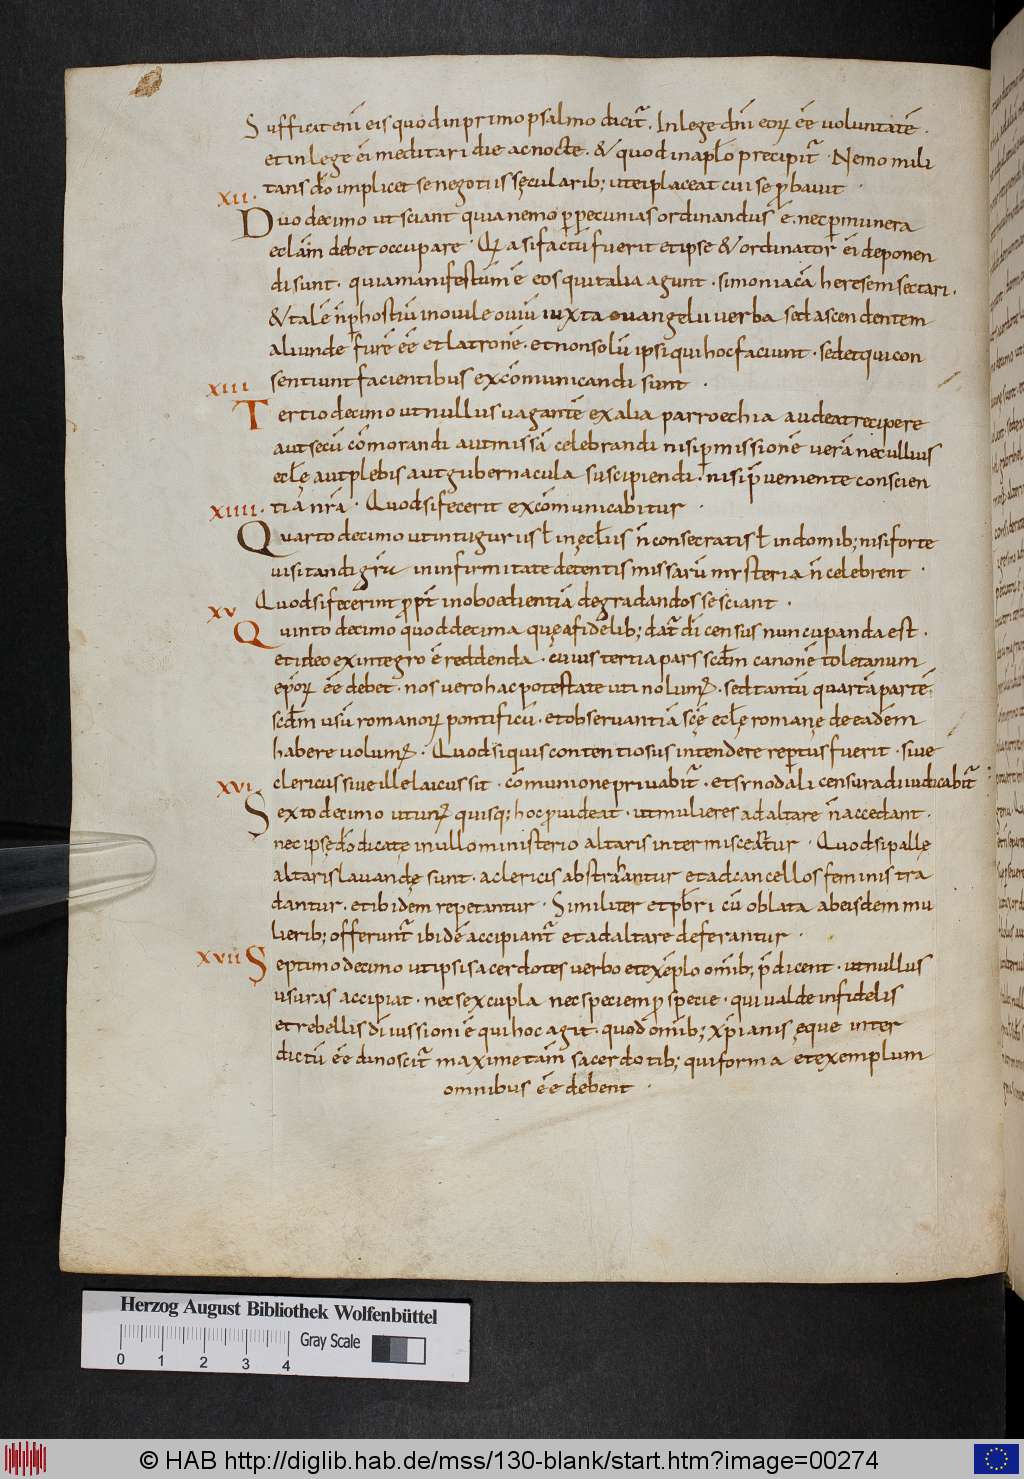 Sufficit enī eis quod in primo psalmo dicit̃. In lege dñi eoꝝ eē voluntatē.
et in lege ei meditari die ac nocte. & quod in apl̄o precipit̃. Nemo mili
tans dō implicet se negotiis sęcularib; ut ei placeat cui se ꝓbavit.
XII.
Duodecimo ut sciant quia nemo ꝑ pecunias ordinandus ē. nec ꝑ munera
eclām debet occupare. Qā si factū fuerit et ipse & ordinator ei deponen
di sunt. quia manifestum ē eos qui talia agunt. simoniacā heresem sectari.
& talē n̄ ꝑ hostiū in ovile oviū iuxta euangelii verba sed ascendentem
aliunde furē eē et latronē. et non solū ipsi qui hoc faciunt. sed et qui con
sentiunt facientibus excōmunicandi sunt.
XIII
Tertiodecimo ut nullus vagantē ex alia parroechia audeat recipere
aut secū cōmorandi aut missā celebrandi nisi ꝑmissionē verā nec ullius
eclę̄ aut plebis aut gubernacula suscipiendi. nisi p̄veniente conscien
XIIII. tia nr̄a. Quod si fecerit excōmunicabitur.
Quartodecimo ut in tuguriis ł in ęcl̄iis n̄ consecratis ł in domib; nisi forte
visitandi gr̄a in infirmitate detentis missarū mysteria n̄ celebrent.
Quod si fecerint ꝓpt̄ inoboedientiā degradandos se sciant.
XV
Quintodecimo quod decima quę a fidelib; dat̃ di census nuncupanda est.
et ideo ex integro ē reddenda. cuius tertia pars scd̄m canonē toletanum
ep̄oꝝ eē debet. nos vero hac potestate uti nolum̃. sed tantū quartā partē
scd̄m usū romanoꝝ pontificū. et observantiā scę̄ eclę̄ romanę de eadem
habere volum̃. Quod si quis contentiosus intendere reꝑtus fuerit. sive
clericus sive ille laicus sit. cōmunione privabit̃. et synodali censura diiudicabit̃
XVI.
Sextodecimo ut unꝰ quisq; hoc ꝓvideat. ut mulieres ad altare n̄ accedant.
nec ipsę dō dicatę in ullo ministerio altaris intermisceantur. Quod si pallę
altaris lavandę sunt. a clericis abstrahantur et ad cancellos feminis tra
dantur. et ibidem repetantur. Similiter et pb̄ri cū oblata ab eisdem mu
lierib; offerunt̃ ibidē accipiant̃ et ad altare deferantur.
XVII Septimodecimo ut ipsi sacerdotes verbo et exēplo omib; p̄dicent. ut nullus
usuras accipiat. nec sexcupla nec speciem ꝓ specie. qui valde infidelis
et rebellis divi ssioni ē qui hoc agit. quod omib; xp̄ianis ęque inter
dictū eē dinoscit̃ maxime tam̄ sacerdotib; qui forma et exemplum
omnibus eē debent.
Herzog August Bibliothek Wolfenbüttel
Gray Scale
0 1 2 3 4
© HAB http://diglib.hab.de/mss/130-blank/start.htm?image=00274